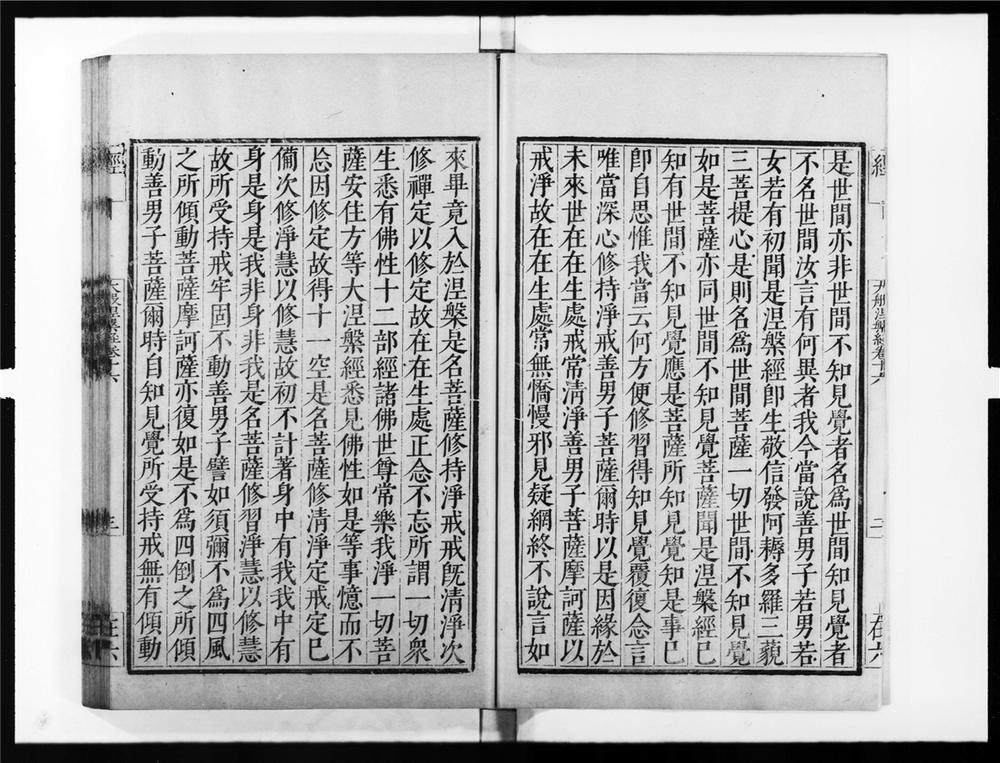 是世間亦非世間不知見覺者名爲世間知見覺者
不名世間汝言有何異者我今當說善男子若男若
女若有初聞是涅槃經卽生敬信發阿耨多羅三藐
三菩提心是則名爲世間菩薩一切世間不知見覺
如是菩薩亦同世間不知見覺菩薩聞是涅槃經已
知有世間不知見覺應是菩薩所知見覺知是事已
卽自思惟我當云何方便修習得知見覺覆復念言
唯當深心修持淨戒善男子菩薩爾時以是因緣於
未來世在在生處戒常清淨善男子菩薩摩訶薩以
戒淨故在在生處常無憍慢邪見疑網終不說言如
來畢竟入於涅槃是名菩薩修持淨戒戒旣清淨次
修禪定以修定故在在生處正念不忘所謂一切衆
生悉有佛性十二部經諸佛世尊常樂我淨一切菩
薩安住方等大涅槃經悉見佛性如是等事憶而不
忘因修定故得十一空是名菩薩修清淨定戒定已
備次修淨慧以修慧故初不計著身中有我我中有
身是身是我非身非我是名菩薩修習淨慧以修慧
故所受持戒牢固不動善男子譬如須彌不爲四風
之所傾動菩薩摩訶薩亦復如是不爲四倒之所傾
動善男子菩薩爾時自知見覺所受持戒無有傾動
經
大般涅槃經卷十六
三